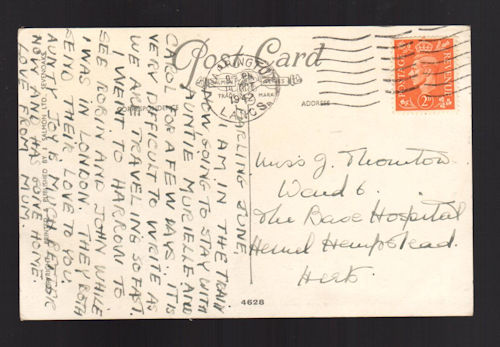 Post Card
TRADE MARK
LANCS.
ADDRESS
POSTAGE
REVENUE
2D
DARLING JUNE,
I AM IN THE TRAIN
NOW GOING TO STAY WITH
AUNTIE MURIELLE AND
CAROL FOR A FEW DAYS. IT IS
VERY DIFFICULT TO WRITE AS
WE ARE TRAVELING SO FAST.
I WENT TO HARROW TO
SEE ROBIN AND JOHN WHILE
I WAS IN LONDON. THEY BOTH
SEND THEIR LOVE TO YOU.
AUNT IS
NOW AND HAS GONE HOME.
LOVE FROM MUM.
Miss J. Thornton
Ward 6.
The Base Hospital
Hemel Hempstead.
Herts.
4628